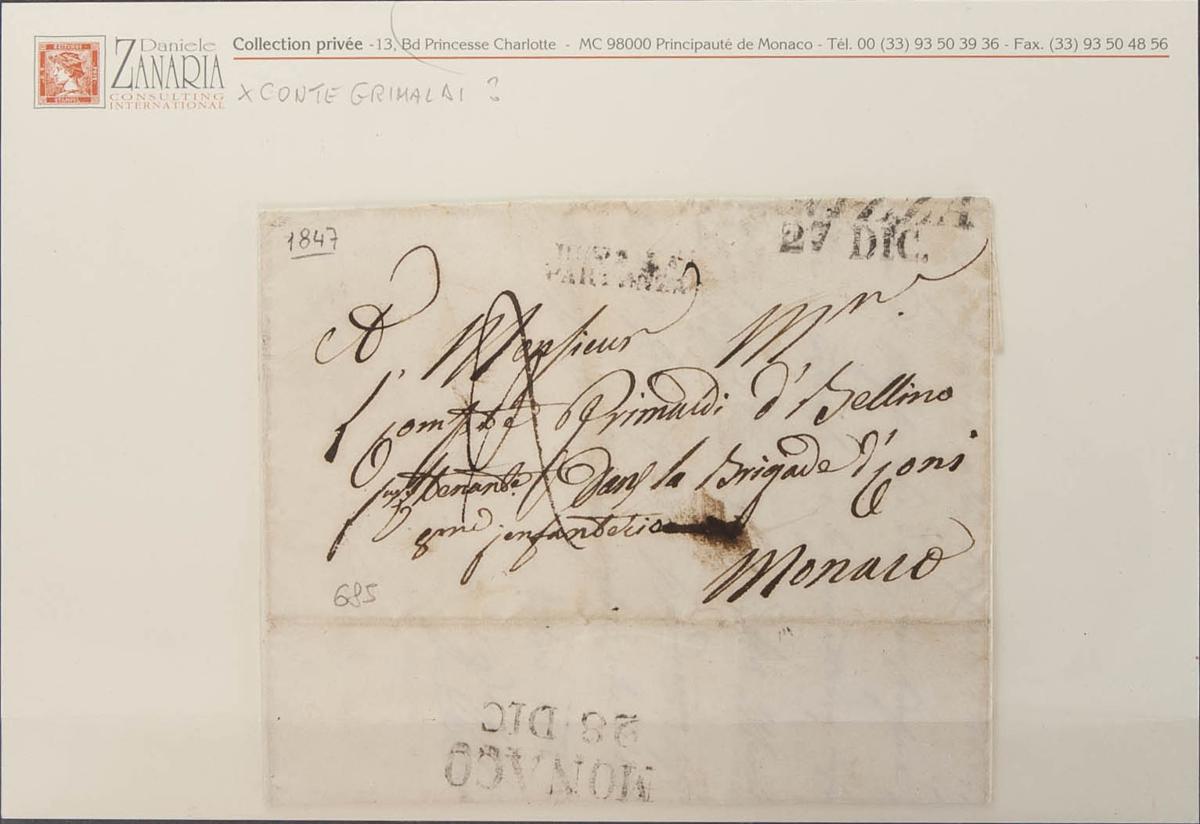 Daniele
ZANARIA
CONSULTING
INTERNATIONAL
Collection privée -13, Bd Princesse Charlotte - MC 98000 Principauté de Monaco - Tél. 00 (33) 93 50 39 36 - Fax. (33) 93 50 48 56
x CONTE GRIMALDI ?
1847
NIZZA
27 DIC.
DOPO LA
PARTENZA
A Monsieur Mr.
l' Grimaldi d'Bellino
dans la Brigade d'Coni
Monaco
685
28 DIC
MONACO